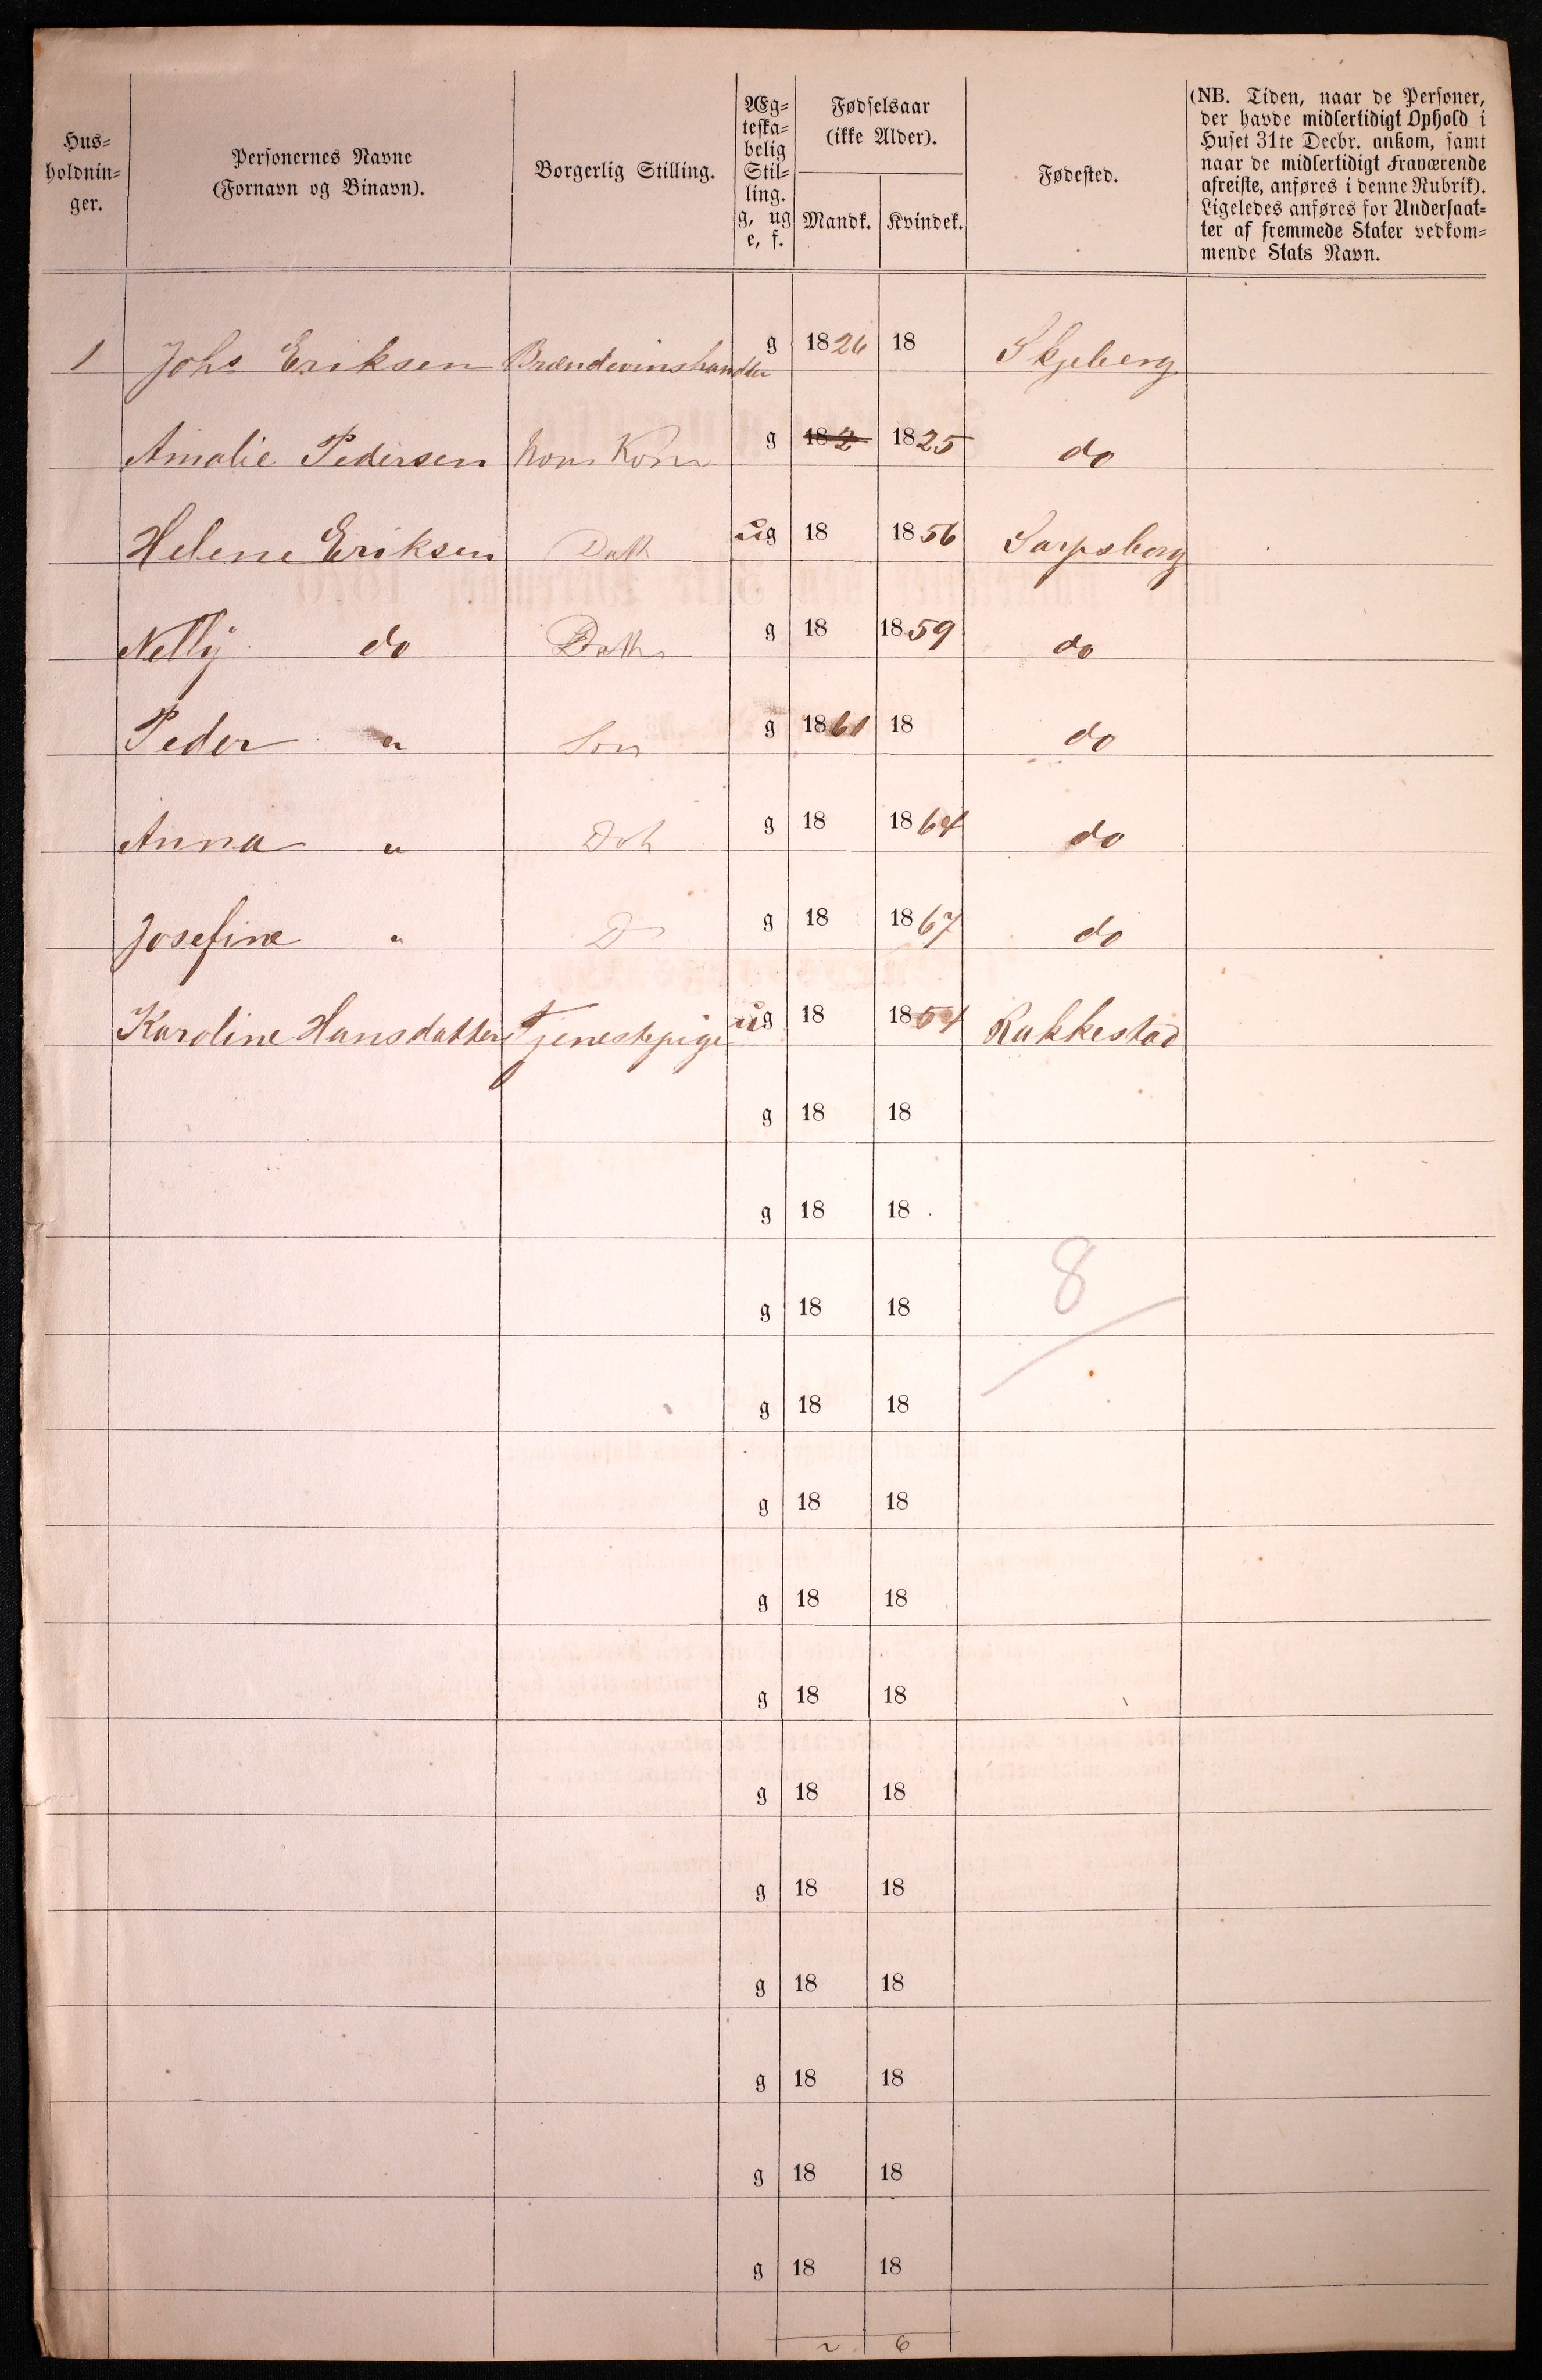 Hus-
holdnin-
ger.
Personernes Navne
(Fornavn og Binavn).
Borgerlig Stilling.
Æg-
teska-
belig
Stil-
ling.
g, ug
e, f.
Fødselsaar
(ikke Alder).
Mandk. Kvindek.
Fødested.
(NB. Tiden, naar de Personer,
der havde midlertidigt Ophold i
Huset 31te Decbr. ankom, samt
naar de midlertidigt Fraværende
afreiste, anføres i denne Rubrik).
Ligeledes anføres for Undersaat-
ter af fremmede Stater vedkom-
mende Stats Navn.
1 Johs Eriksen Brændevinshandler g 1826 18 Skjeberg
Amalie Pedersen hans Kone g 182 1825 do
Helene Eriksen Datt ug 18 1856 Sarpsborg
Nelly do Datt g 18 1859 do
Peder " Søn g 1861 18 do
Anna " Dot g 18 1864 do
Josefine " D g 18 1867 do
Karoline Hansdatter Tjenestepige ug 18 1854 Rakkestad
g 18 18
g 18 18
g 18 18 8
g 18 18
g 18 18
g 18 18
g 18 18
g 18 18
g 18 18
g 18 18
g 18 18
g 18 18
g 18 18
2 6